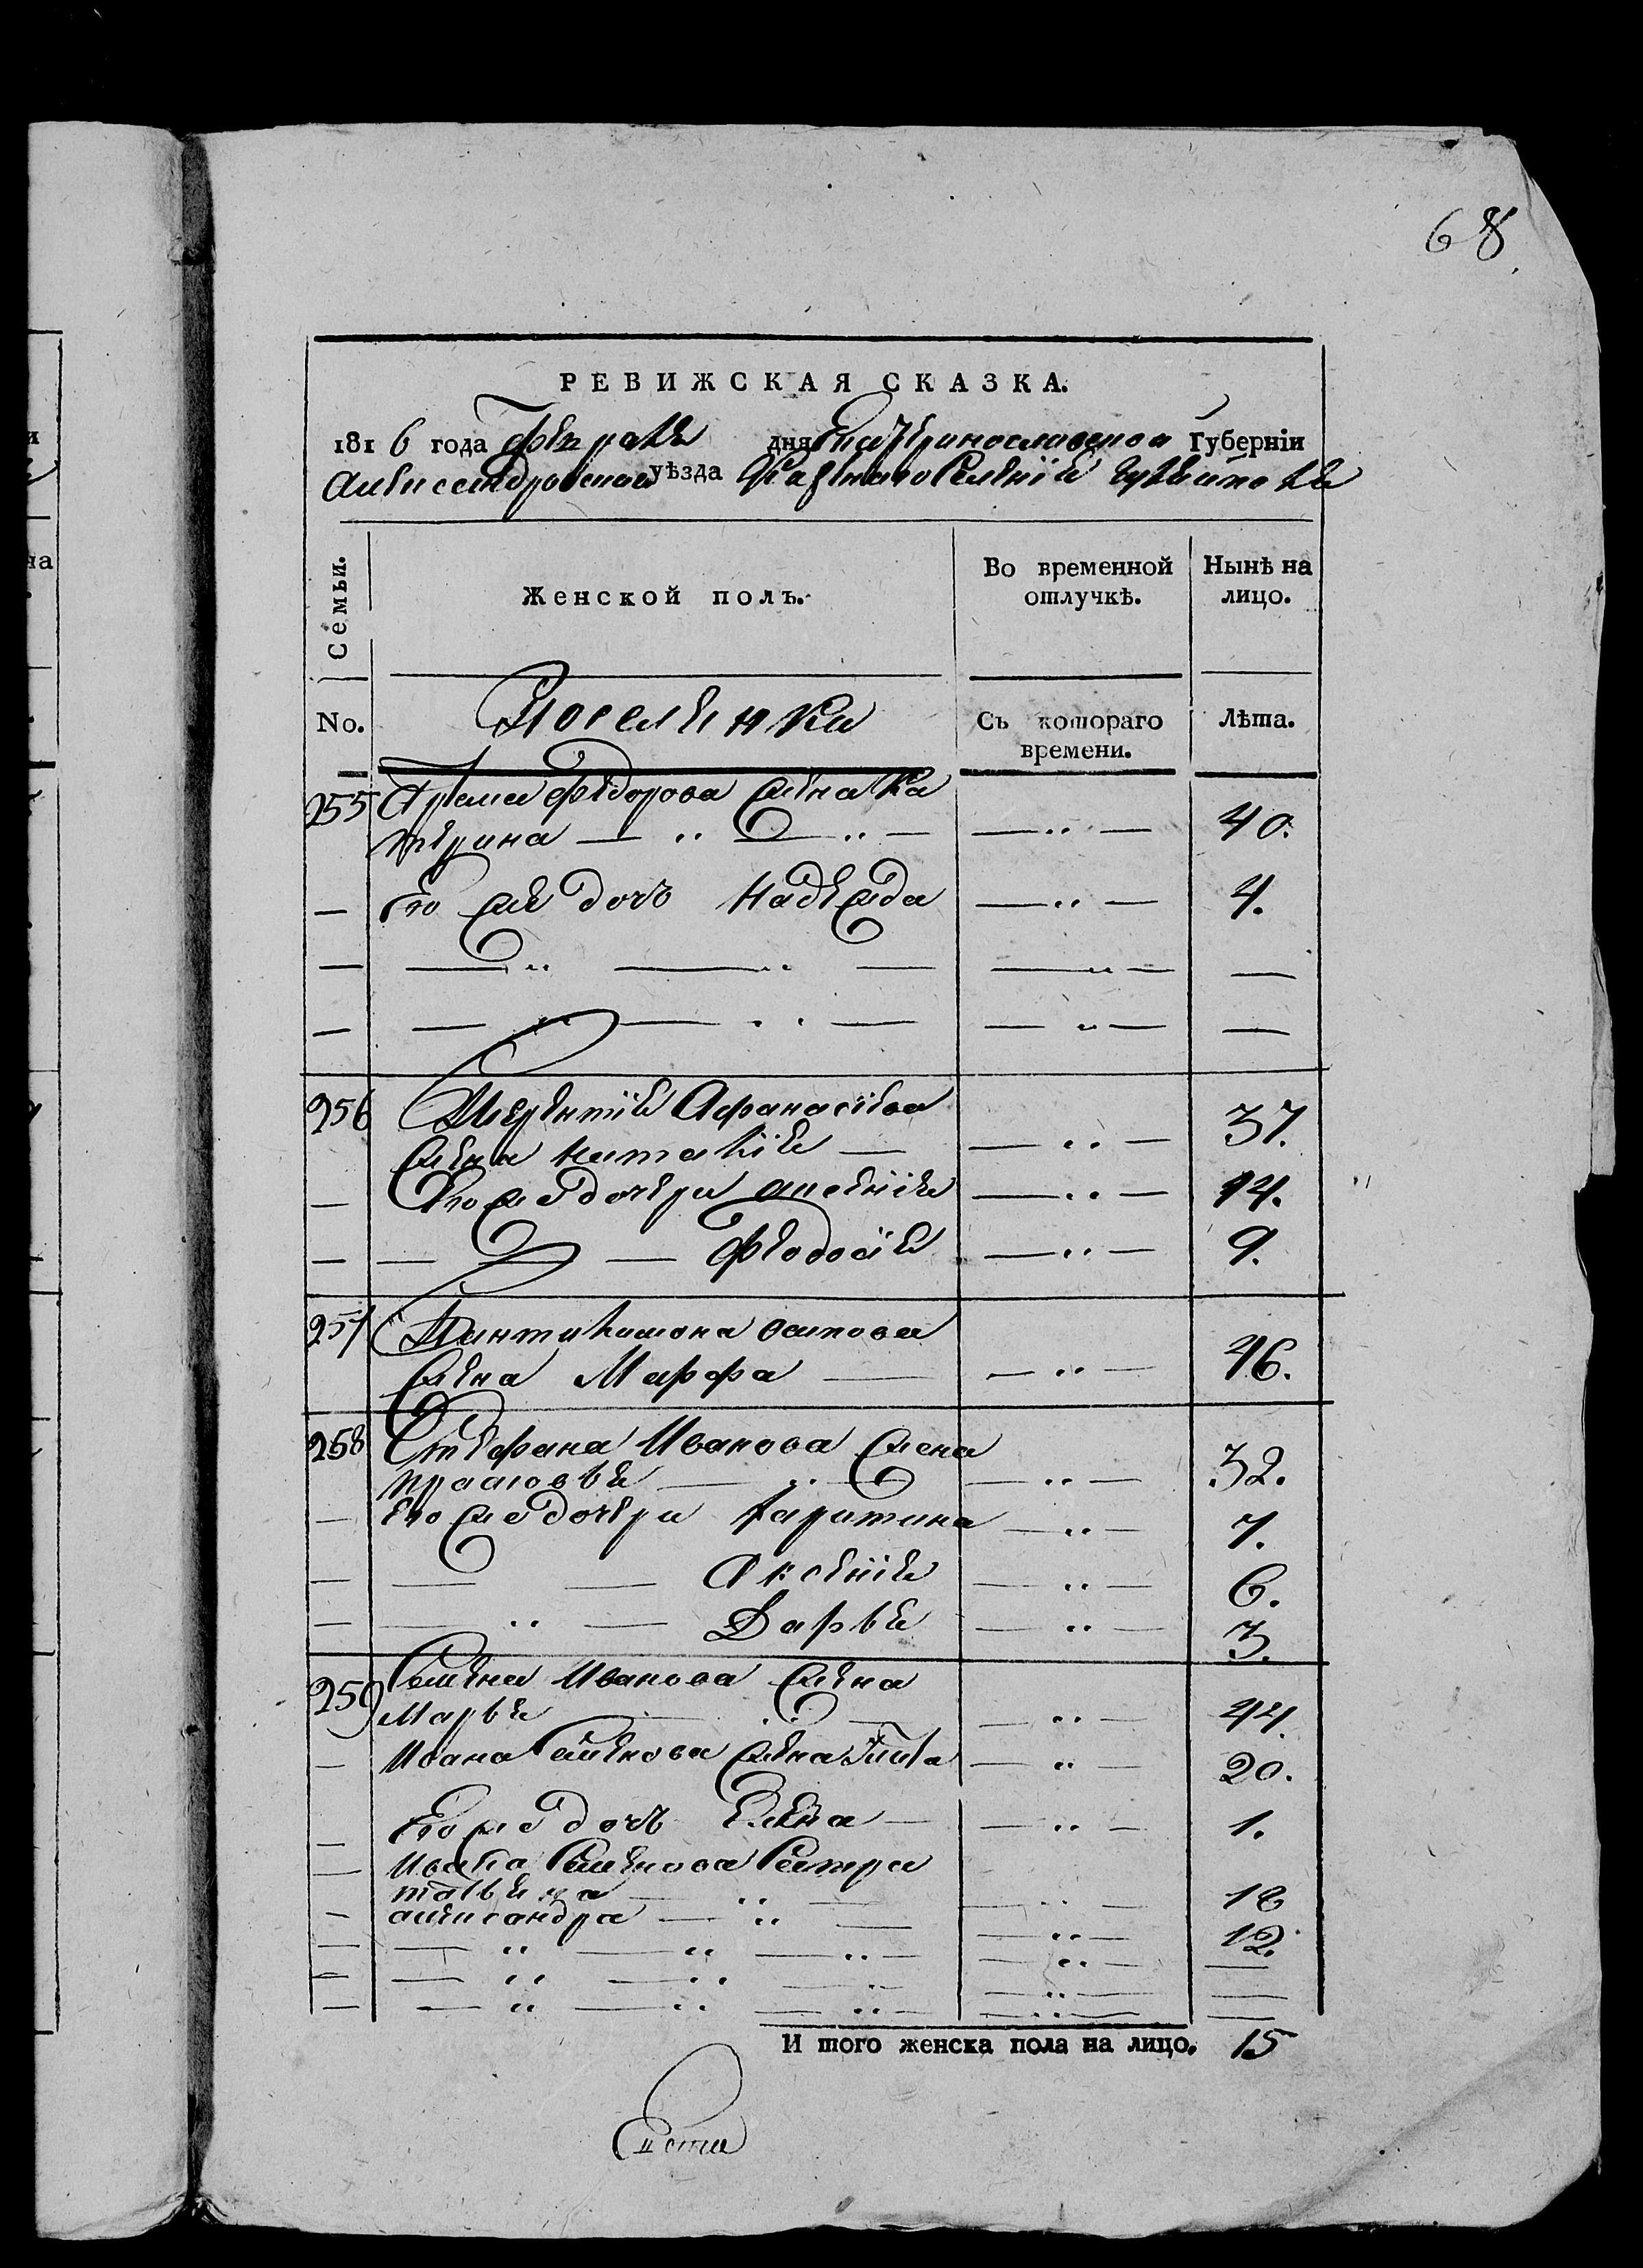 68
РЕВИЖСКАЯ СКАЗКА.
1816 года февраля дня Екатеринославской Губерніи
Александровскаго уѣзда Казеннаго Селенія
Семьи.
Женской полъ.
Во временной отлучкѣ.
Нынѣ на лицо.
No.
Поселянки
Съ котораго времени.
Лѣта.
255 Артема Федорова жена Ка
терина — „ — „ — — „ — 40.
— Его же дочь Надежда — „ — 4.
— — „ — „ — — „ — —
— — „ — „ — — „ — —
256 Терентія Афанасіева
жена Наталія — — „ — 37.
— Его же дочери Аксенія — „ — 14.
— — — — Феодосія — „ — 9.
257 Пантилимона Осипова
жена Марфа — — „ — 46.
258 Стефана Иванова жена
Прасковья — „ — — „ — 32.
— Его же дочери Харитина — „ — 7.
— — — Аксенія — „ — 6.
— — „ — Дарья — „ — 3.
259 Семена Иванова жена
Марья — „ — — „ — 44.
— Ивана Семенова жена — „ — 20.
— Его же дочь Елена — — „ — 1.
— Ивана Семенова сестра
Татьяна — „ — — „ — 18
— Александра — „ — — „ — 12.
— — „ — „ — „ — — „ — —
— — „ — „ — „ — — „ — —
— — „ — „ — „ — — „ — —
И того женска пола на лицо. 15